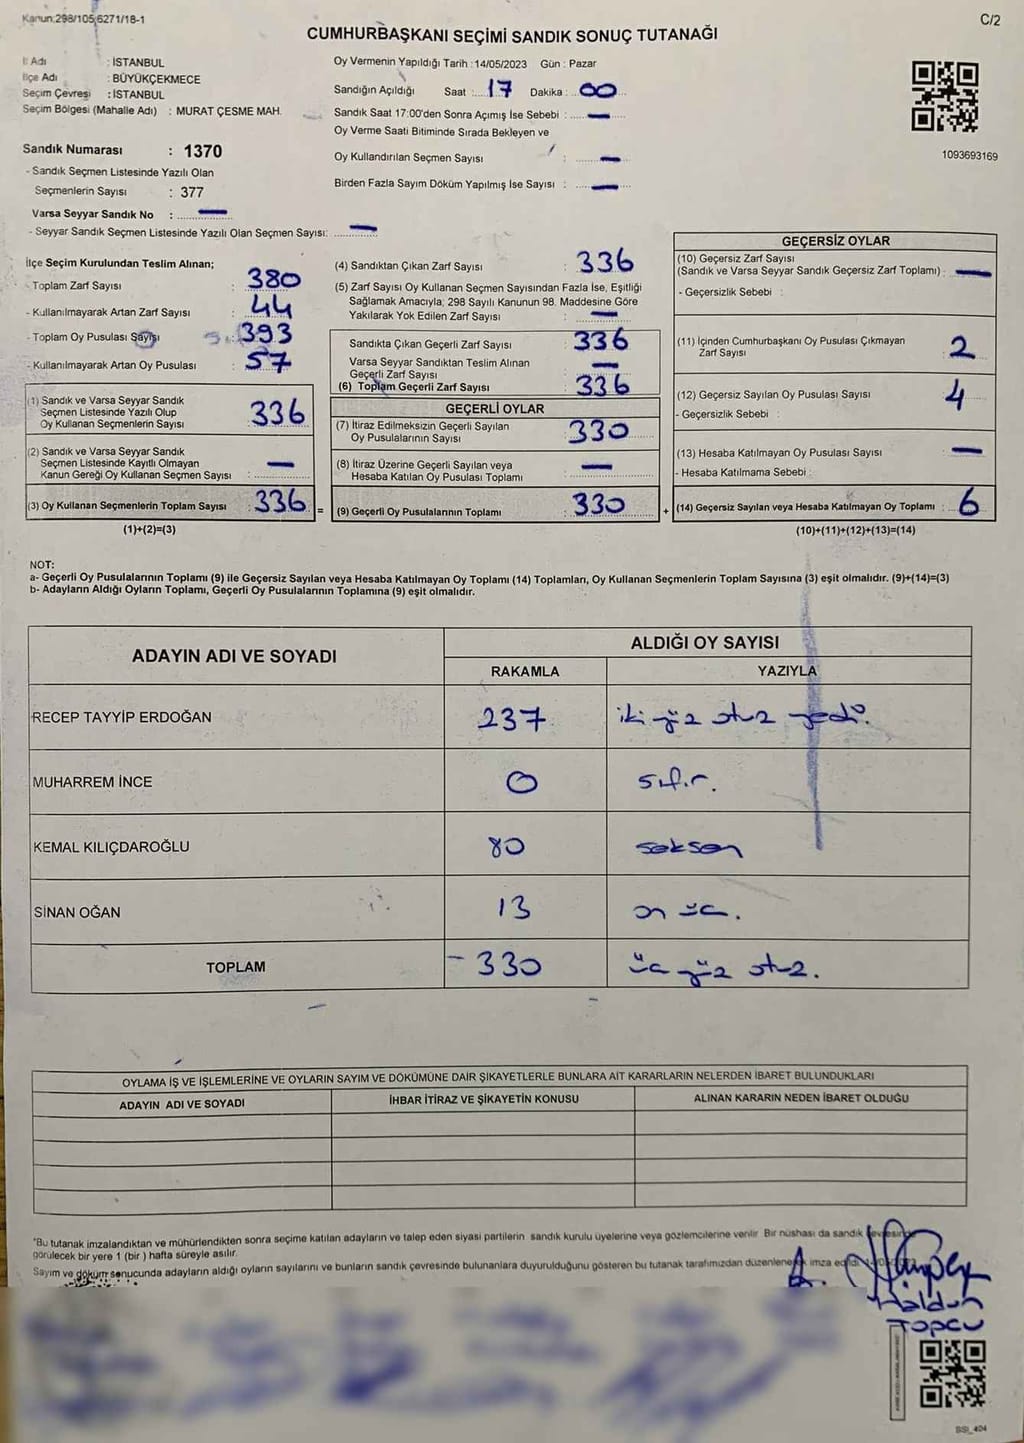 Kanun:298/105;6271/18-1
C/2
CUMHURBAŞKANI SEÇİMİ SANDIK SONUÇ TUTANAĞI
İl Adı : İSTANBUL
İlçe Adı : BÜYÜKÇEKMECE
Seçim Çevresi : İSTANBUL
Seçim Bölgesi (Mahalle Adı) : MURAT ÇESME MAH.
Sandık Numarası : 1370
- Sandık Seçmen Listesinde Yazılı Olan
Seçmenlerin Sayısı : 377
Varsa Seyyar Sandık No : —
- Seyyar Sandık Seçmen Listesinde Yazılı Olan Seçmen Sayısı: —
Oy Vermenin Yapıldığı Tarih : 14/05/2023 Gün : Pazar
Sandığın Açıldığı Saat : 17 Dakika : 00
Sandık Saat 17:00'den Sonra Açımış İse Sebebi : —
Oy Verme Saati Bitiminde Sırada Bekleyen ve
Oy Kullandırılan Seçmen Sayısı : —
Birden Fazla Sayım Döküm Yapılmış İse Sayısı : —
1093693169
İlçe Seçim Kurulundan Teslim Alınan;
- Toplam Zarf Sayısı : 380
- Kullanılmayarak Artan Zarf Sayısı : 44
- Toplam Oy Pusulası Sayısı : 393
- Kullanılmayarak Artan Oy Pusulası : 57
(1) Sandık ve Varsa Seyyar Sandık
Seçmen Listesinde Yazılı Olup
Oy Kullanan Seçmenlerin Sayısı : 336
(2) Sandık ve Varsa Seyyar Sandık
Seçmen Listesinde Kayıtlı Olmayan
Kanun Gereği Oy Kullanan Seçmen Sayısı : —
(3) Oy Kullanan Seçmenlerin Toplam Sayısı : 336 =
(1)+(2)=(3)
(4) Sandıktan Çıkan Zarf Sayısı : 336
(5) Zarf Sayısı Oy Kullanan Seçmen Sayısından Fazla İse, Eşitliği
Sağlamak Amacıyla; 298 Sayılı Kanunun 98. Maddesine Göre
Yakılarak Yok Edilen Zarf Sayısı : —
Sandıkta Çıkan Geçerli Zarf Sayısı : 336
Varsa Seyyar Sandıktan Teslim Alınan
Geçerli Zarf Sayısı : —
(6) Toplam Geçerli Zarf Sayısı : 336
GEÇERLİ OYLAR
(7) İtiraz Edilmeksizin Geçerli Sayılan
Oy Pusulalarının Sayısı : 330
(8) İtiraz Üzerine Geçerli Sayılan veya
Hesaba Katılan Oy Pusulası Toplamı : —
(9) Geçerli Oy Pusulalarının Toplamı : 330 +
GEÇERSİZ OYLAR
(10) Geçersiz Zarf Sayısı
(Sandık ve Varsa Seyyar Sandık Geçersiz Zarf Toplamı) : —
- Geçersizlik Sebebi :
(11) İçinden Cumhurbaşkanı Oy Pusulası Çıkmayan
Zarf Sayısı : 2
(12) Geçersiz Sayılan Oy Pusulası Sayısı : 4
- Geçersizlik Sebebi :
(13) Hesaba Katılmayan Oy Pusulası Sayısı : —
- Hesaba Katılmama Sebebi :
(14) Geçersiz Sayılan veya Hesaba Katılmayan Oy Toplamı : 6
(10)+(11)+(12)+(13)=(14)
NOT:
a- Geçerli Oy Pusulalarının Toplamı (9) ile Geçersiz Sayılan veya Hesaba Katılmayan Oy Toplamı (14) Toplamları, Oy Kullanan Seçmenlerin Toplam Sayısına (3) eşit olmalıdır. (9)+(14)=(3)
b- Adayların Aldığı Oyların Toplamı, Geçerli Oy Pusulalarının Toplamına (9) eşit olmalıdır.
ADAYIN ADI VE SOYADI
ALDIĞI OY SAYISI
RAKAMLA YAZIYLA
RECEP TAYYİP ERDOĞAN 237 iki yüz otuz yedi.
MUHARREM İNCE 0 sıfır.
KEMAL KILIÇDAROĞLU 80 seksen
SİNAN OĞAN 13 on üç.
TOPLAM - 330 üç yüz otuz.
OYLAMA İŞ VE İŞLEMLERİNE VE OYLARIN SAYIM VE DÖKÜMÜNE DAİR ŞİKAYETLERLE BUNLARA AİT KARARLARIN NELERDEN İBARET BULUNDUKLARI
ADAYIN ADI VE SOYADI İHBAR İTİRAZ VE ŞİKAYETİN KONUSU ALINAN KARARIN NEDEN İBARET OLDUĞU
*Bu tutanak imzalandıktan ve mühürlendikten sonra seçime katılan adayların ve talep eden siyasi partilerin sandık kurulu üyelerine veya gözlemcilerine verilir. Bir nüshası da sandık çevresinde
görülecek bir yere 1 (bir ) hafta süreyle asılır.
Sayım ve döküm sonucunda adayların aldığı oyların sayılarını ve bunların sandık çevresinde bulunanlara duyurulduğunu gösteren bu tutanak tarafımızdan düzenlenerek imza edildi.
Haldun
Topcu
BSI_404